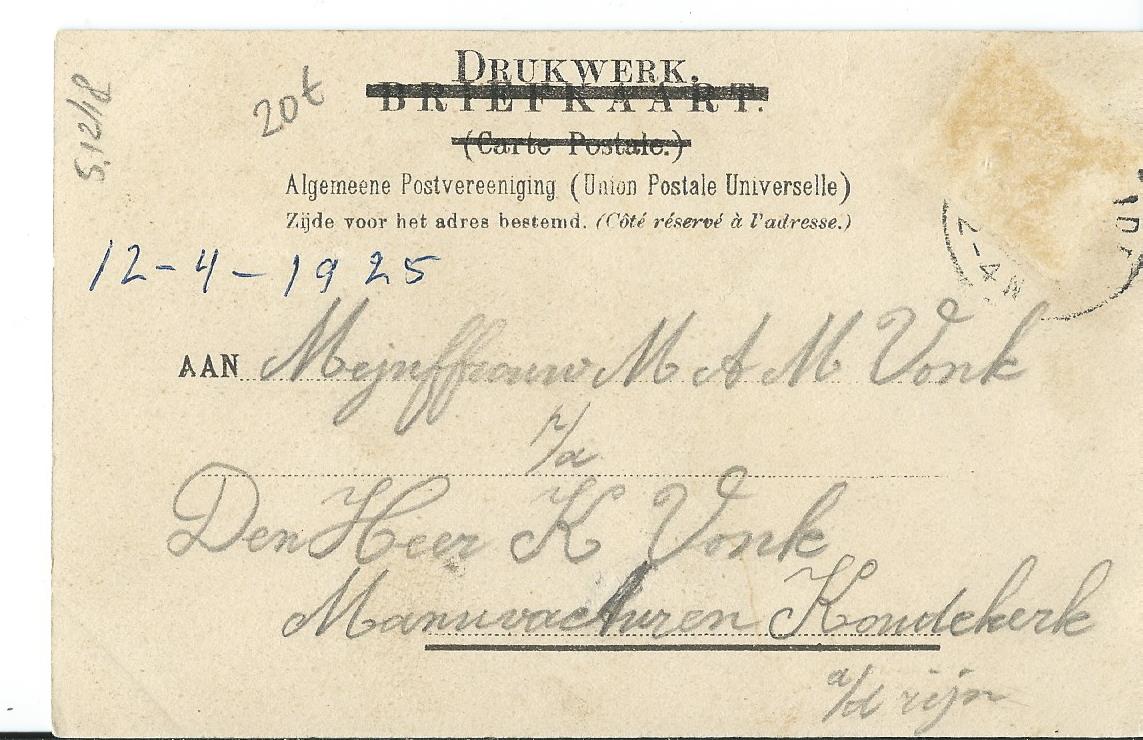 DRUKWERK.
BRIEFKAART.
(Carte Postale.)
Algemeene Postvereeniging (Union Postale Universelle)
Zijde voor het adres bestemd. (Côté réservé à l'adresse.)
20t
5.12/18
12-4-1925
AAN Mejuffrouw M A M Vonk
p/a
Den Heer K Vonk
Manuvacturen Koudekerk
a/d rijn